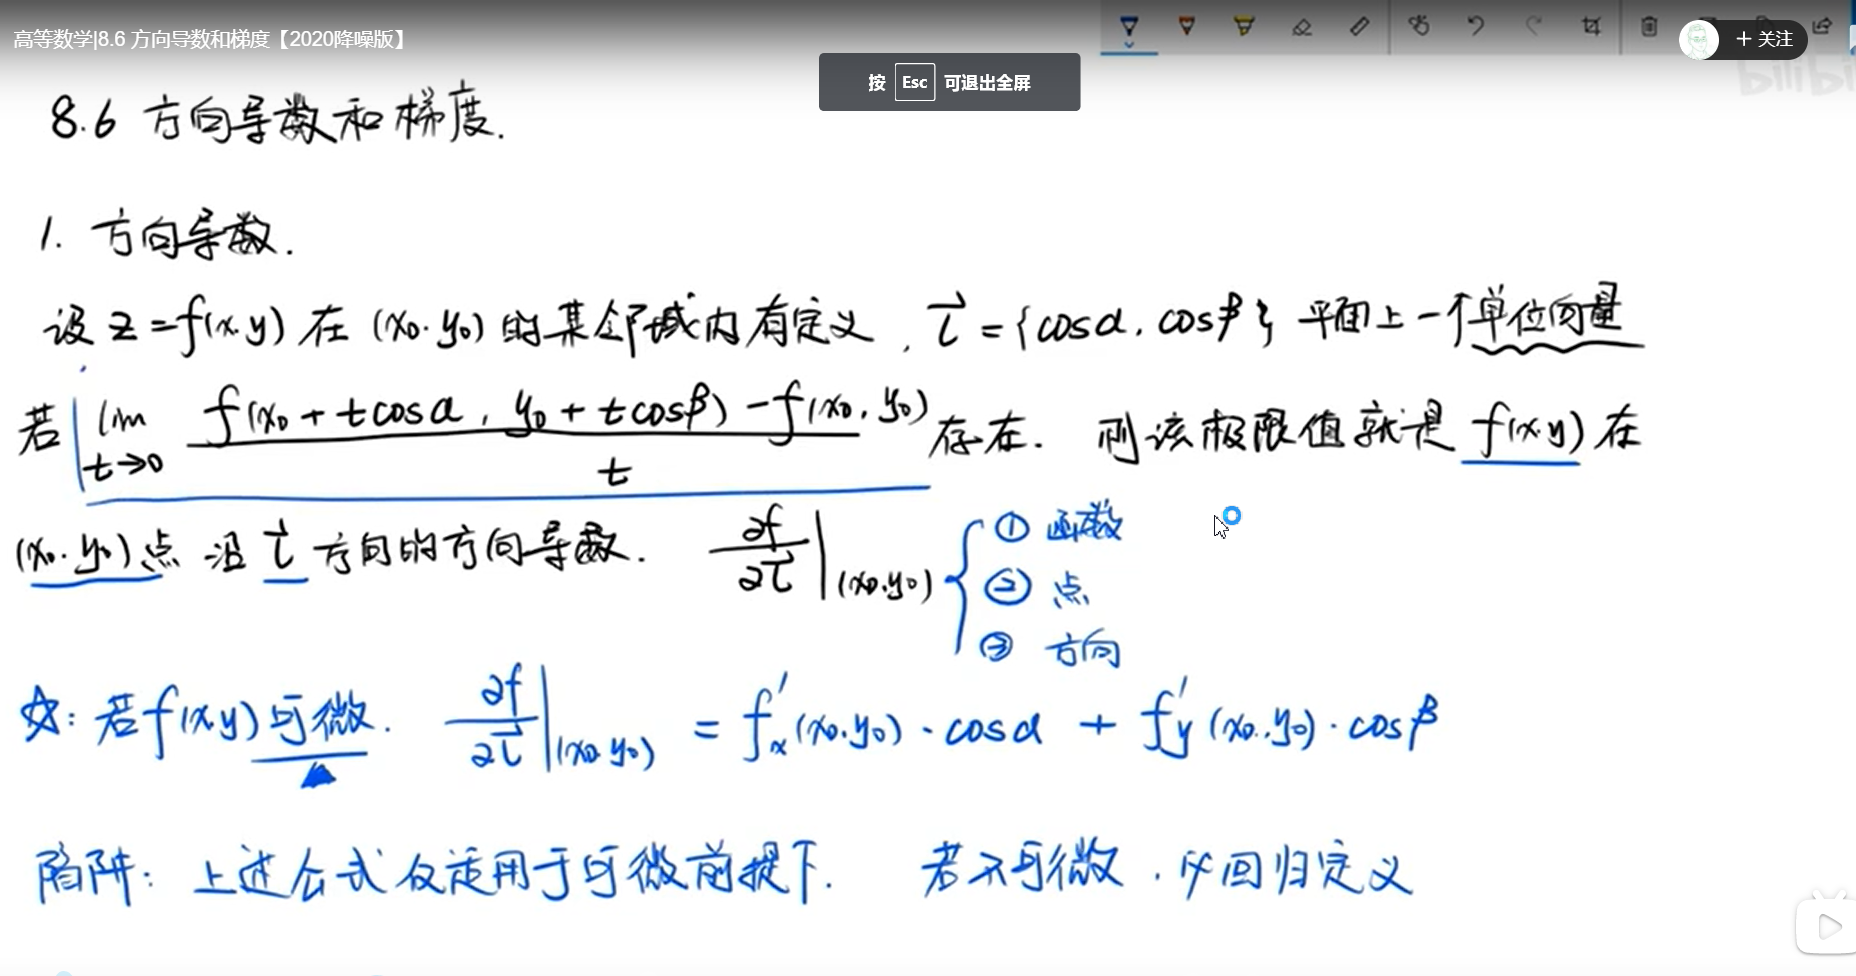 高等数学|8.6 方向导数和梯度【2020降噪版】
+ 关注
bilibi
按 Esc 可退出全屏
8.6 方向导数和梯度.
1. 方向导数.
设 z=f(x.y) 在 (x₀.y₀) 的某邻域内有定义, \vec{l}={cosα, cosβ}, 平面上一个单位向量
若 lim_{t→0} \frac{f(x₀+tcosα, y₀+tcosβ)-f(x₀, y₀)}{t} 存在. 则该极限值就是 f(x.y) 在
(x₀.y₀)点 沿 \vec{l} 方向的方向导数. \frac{∂f}{∂\vec{l}}|_{(x₀.y₀)}
① 函数
② 点
③ 方向
☆: 若f(x.y)可微. \frac{∂f}{∂\vec{l}}|_{(x₀.y₀)} = f'_x(x₀.y₀)·cosα + f'_y(x₀.y₀)·cosβ
陷阱: 上述公式仅适用于可微前提下. 若不可微, 必回归定义